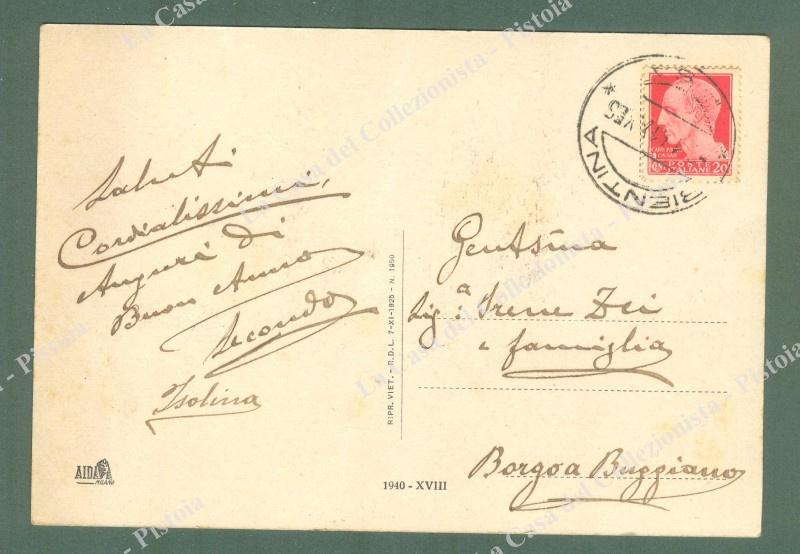 Saluti
Cordialissimi,
Auguri di
Buon Anno
Secondo
Isolina
AIDA
MILANO
RIPR. VIET. - R.D.L. 7-XI-1925 - N. 1950
1940 - XVIII
BIENTINA
POSTE
ITALIANE 20
Gentsima
Sig.a Irene Dei
e famiglia
Borgo a Buggiano
La Casa del Collezionista - Pistoia